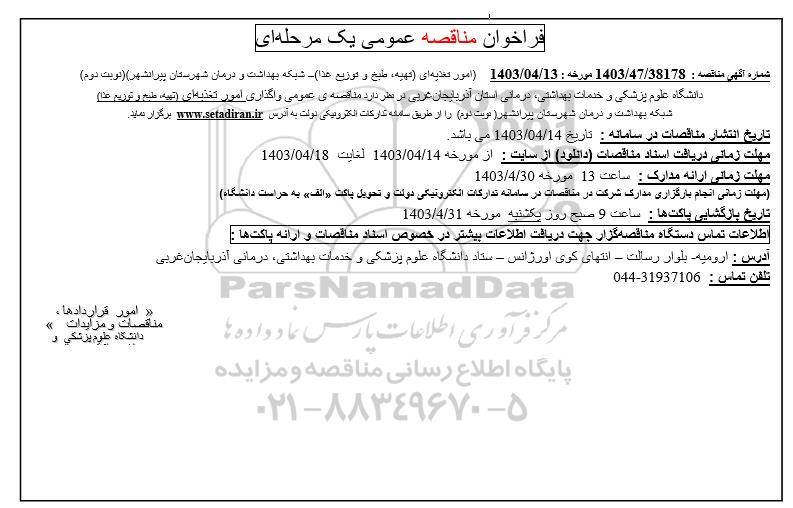 فراخوان مناقصه عمومی یک مرحله‌ای
شماره آگهی مناقصه : 1403/47/38178 مورخه : 1403/04/13 (امور تغذیه‌ای (تهیه، طبخ و توزیع غذا)– شبکه بهداشت و درمان شهرستان پیرانشهر)(نوبت دوم)
دانشگاه علوم پزشکی و خدمات بهداشتی، درمانی استان آذربایجان‌غربی در نظر دارد مناقصه ی عمومی واگذاری امور تغذیه‌ای (تهیه، طبخ و توزیع غذا)
شبکه بهداشت و درمان شهرستان پیرانشهر( نوبت دوم) را از طریق سامانه تدارکات الکترونیکی دولت به آدرس www.setadiran.ir برگزار نماید.
تاریخ انتشار مناقصات در سامانه : تاریخ 1403/04/14 می باشد.
مهلت زمانی دریافت اسناد مناقصات (دانلود) از سایت : از مورخه 1403/04/14 لغایت 1403/04/18
مهلت زمانی ارائه مدارک : ساعت 13 مورخه 1403/4/30
(مهلت زمانی انجام بارگزاری مدارک شرکت در مناقصات در سامانه تدارکات الکترونیکی دولت و تحویل پاکت «الف» به حراست دانشگاه)
تاریخ بازگشایی پاکت‌ها : ساعت 9 صبح روز یکشنبه مورخه 1403/4/31
اطلاعات تماس دستگاه مناقصه‌گزار جهت دریافت اطلاعات بیشتر در خصوص اسناد مناقصات و ارائه پاکت‌ها :
آدرس : ارومیه- بلوار رسالت – انتهای کوی اورژانس – ستاد دانشگاه علوم پزشکی و خدمات بهداشتی، درمانی آذربایجان‌غربی
تلفن تماس : 044-31937106
ParsNamadData
« امور قراردادها ،
مناقصات و مزایدات »
دانشگاه علوم پزشکی و
مرکز فرآوری اطلاعات پارس نماد داده‌ها
پایگاه اطلاع رسانی مناقصه و مزایده
۰۲۱-۸۸۳۴۹۶۷۰-۵